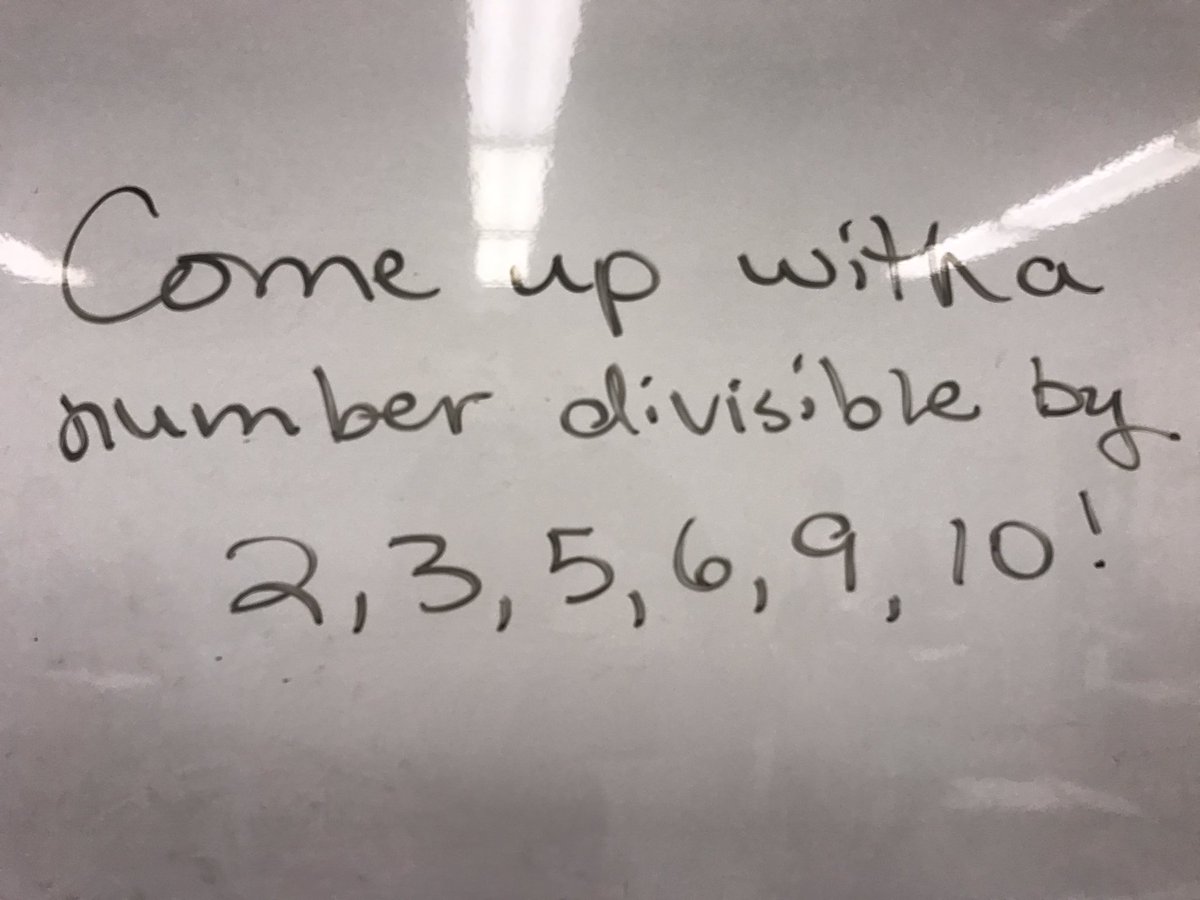 Come up with a
number divisible by
2, 3, 5, 6, 9, 10!